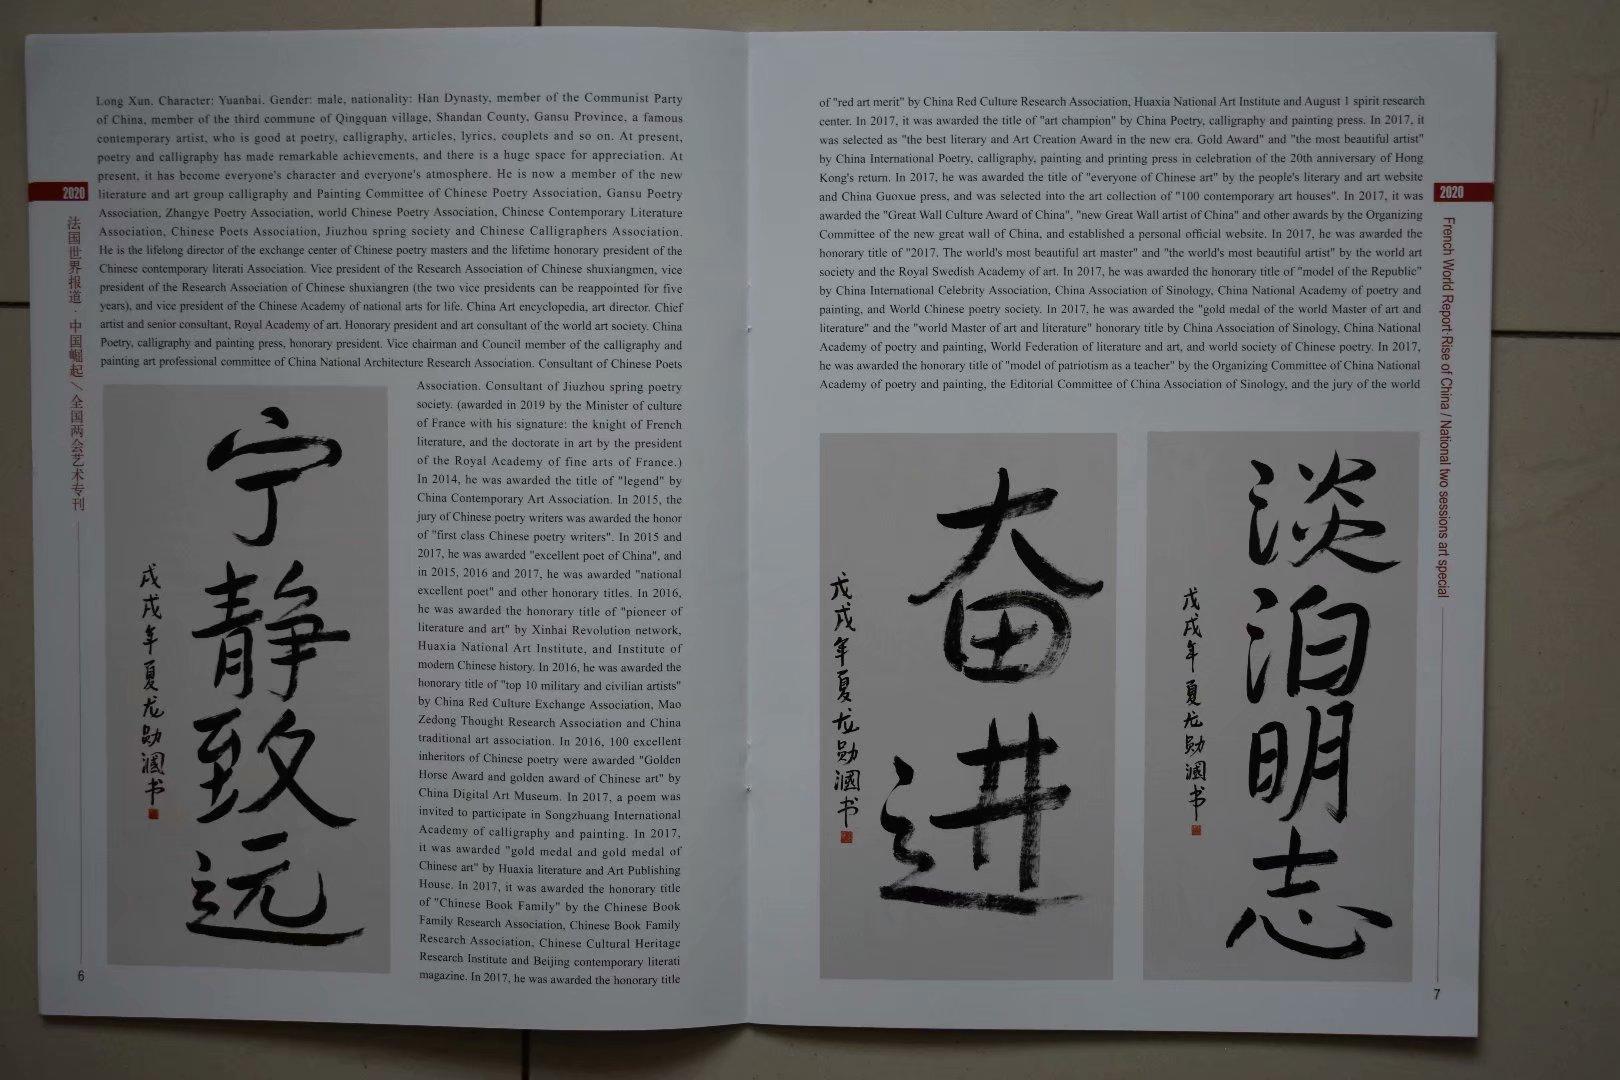 Long Xun. Character: Yuanbai. Gender: male, nationality: Han Dynasty, member of the Communist Party
of China, member of the third commune of Qingquan village, Shandan County, Gansu Province, a famous
contemporary artist, who is good at poetry, calligraphy, articles, lyrics, couplets and so on. At present,
poetry and calligraphy has made remarkable achievements, and there is a huge space for appreciation. At
present, it has become everyone's character and everyone's atmosphere. He is now a member of the new
literature and art group calligraphy and Painting Committee of Chinese Poetry Association, Gansu Poetry
Association, Zhangye Poetry Association, world Chinese Poetry Association, Chinese Contemporary Literature
Association, Chinese Poets Association, Jiuzhou spring society and Chinese Calligraphers Association.
He is the lifelong director of the exchange center of Chinese poetry masters and the lifetime honorary president of the
Chinese contemporary literati Association. Vice president of the Research Association of Chinese shuxiangmen, vice
president of the Research Association of Chinese shuxiangren (the two vice presidents can be reappointed for five
years), and vice president of the Chinese Academy of national arts for life. China Art encyclopedia, art director. Chief
artist and senior consultant, Royal Academy of art. Honorary president and art consultant of the world art society. China
Poetry, calligraphy and painting press, honorary president. Vice chairman and Council member of the calligraphy and
painting art professional committee of China National Architecture Research Association. Consultant of Chinese Poets
Association. Consultant of Jiuzhou spring poetry
society. (awarded in 2019 by the Minister of culture
of France with his signature: the knight of French
literature, and the doctorate in art by the president
of the Royal Academy of fine arts of France.)
In 2014, he was awarded the title of "legend" by
China Contemporary Art Association. In 2015, the
jury of Chinese poetry writers was awarded the honor
of "first class Chinese poetry writers". In 2015 and
2017, he was awarded "excellent poet of China", and
in 2015, 2016 and 2017, he was awarded "national
excellent poet" and other honorary titles. In 2016,
he was awarded the honorary title of "pioneer of
literature and art" by Xinhai Revolution network,
Huaxia National Art Institute, and Institute of
modern Chinese history. In 2016, he was awarded the
honorary title of "top 10 military and civilian artists"
by China Red Culture Exchange Association, Mao
Zedong Thought Research Association and China
traditional art association. In 2016, 100 excellent
inheritors of Chinese poetry were awarded "Golden
Horse Award and golden award of Chinese art" by
China Digital Art Museum. In 2017, a poem was
invited to participate in Songzhuang International
Academy of calligraphy and painting. In 2017,
it was awarded "gold medal and gold medal of
Chinese art" by Huaxia literature and Art Publishing
House. In 2017, it was awarded the honorary title
of "Chinese Book Family" by the Chinese Book
Family Research Association, Chinese Book Family
Research Association, Chinese Cultural Heritage
Research Institute and Beijing contemporary literati
magazine. In 2017, he was awarded the honorary title
2020
法国世界报道·中国崛起/全国两会艺术专刊
宁静致远
戊戌年夏龙勋溷书
6
of "red art merit" by China Red Culture Research Association, Huaxia National Art Institute and August 1 spirit research
center. In 2017, it was awarded the title of "art champion" by China Poetry, calligraphy and painting press. In 2017, it
was selected as "the best literary and Art Creation Award in the new era. Gold Award" and "the most beautiful artist"
by China International Poetry, calligraphy, painting and printing press in celebration of the 20th anniversary of Hong
Kong's return. In 2017, he was awarded the title of "everyone of Chinese art" by the people's literary and art website
and China Guoxue press, and was selected into the art collection of "100 contemporary art houses". In 2017, it was
awarded the "Great Wall Culture Award of China", "new Great Wall artist of China" and other awards by the Organizing
Committee of the new great wall of China, and established a personal official website. In 2017, he was awarded the
honorary title of "2017. The world's most beautiful art master" and "the world's most beautiful artist" by the world art
society and the Royal Swedish Academy of art. In 2017, he was awarded the honorary title of "model of the Republic"
by China International Celebrity Association, China Association of Sinology, China National Academy of poetry and
painting, and World Chinese poetry society. In 2017, he was awarded the "gold medal of the world Master of art and
literature" and the "world Master of art and literature" honorary title by China Association of Sinology, China National
Academy of poetry and painting, World Federation of literature and art, and world society of Chinese poetry. In 2017,
he was awarded the honorary title of "model of patriotism as a teacher" by the Organizing Committee of China National
Academy of poetry and painting, the Editorial Committee of China Association of Sinology, and the jury of the world
2020
French World Report·Rise of China / National two sessions art special
奋进
戊戌年夏龙勋溷书
淡泊明志
戊戌年夏龙勋溷书
7